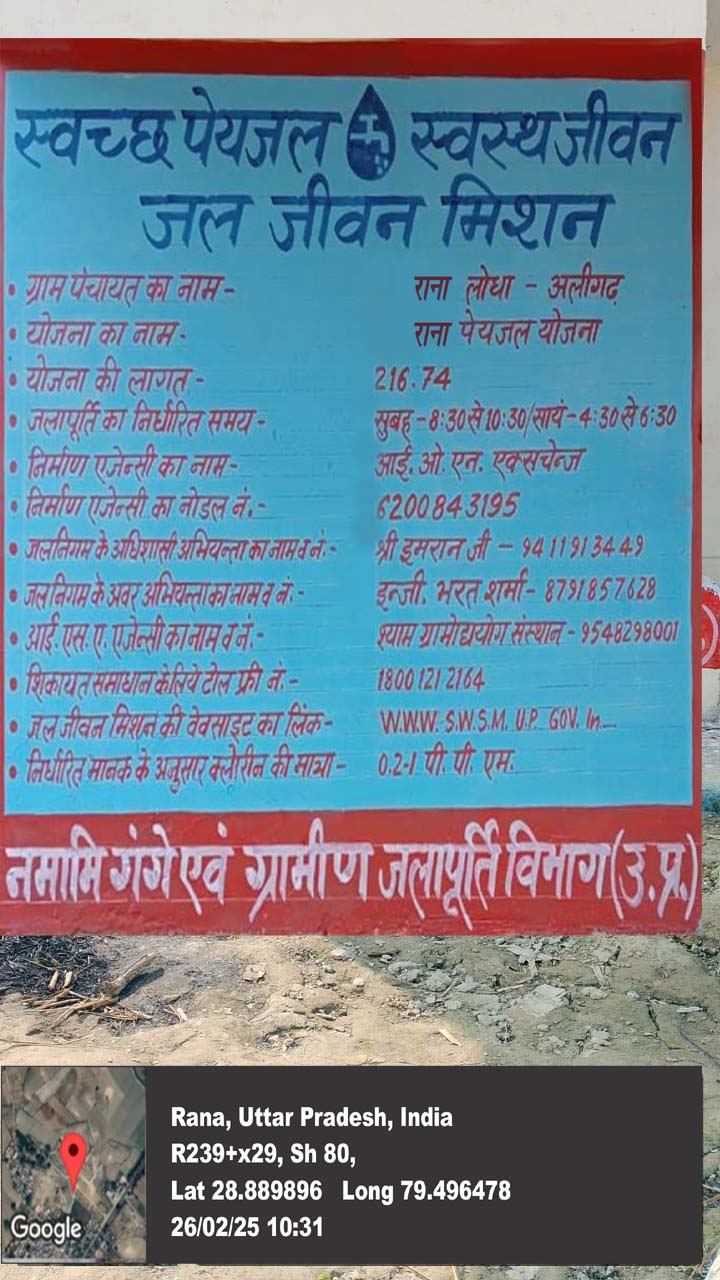 स्वच्छ पेयजल स्वस्थ जीवन
जल जीवन मिशन
• ग्राम पंचायत का नाम - राना लोधा - अलीगढ़
• योजना का नाम - राना पेयजल योजना
• योजना की लागत - 216.74
• जलापूर्ति का निर्धारित समय - सुबह - 8:30 से 10:30/सायं - 4:30 से 6:30
• निर्माण एजेन्सी का नाम - आई. ओ. एन. एक्सचेन्ज
• निर्माण एजेन्सी का नोडल नं. - 6200843195
• जलनिगम के अधिशासी अभियन्ता का नाम व नं:- श्री इमरान जी - 9411913449
• जलनिगम के अवर अभियन्ता का नाम व नं:- इन्जी. भरत शर्मा - 8791857628
• आई. एस. ए. एजेन्सी का नाम व नं:- श्याम ग्रामोद्ययोग संस्थान - 9548298001
• शिकायत समाधान के लिये टोल फ्री नं:- 1800 121 2164
• जल जीवन मिशन की वेवसाइट का लिंक - W.W.W. S.W.S.M. U.P. GOV. In....
• निर्धारित मानक के अनुसार क्लोरीन की मात्रा - 0.2-1 पी. पी. एम.
नमामि गंगे एवं ग्रामीण जलापूर्ति विभाग (उ.प्र.)
Rana, Uttar Pradesh, India
R239+x29, Sh 80,
Lat 28.889896 Long 79.496478
26/02/25 10:31
Google